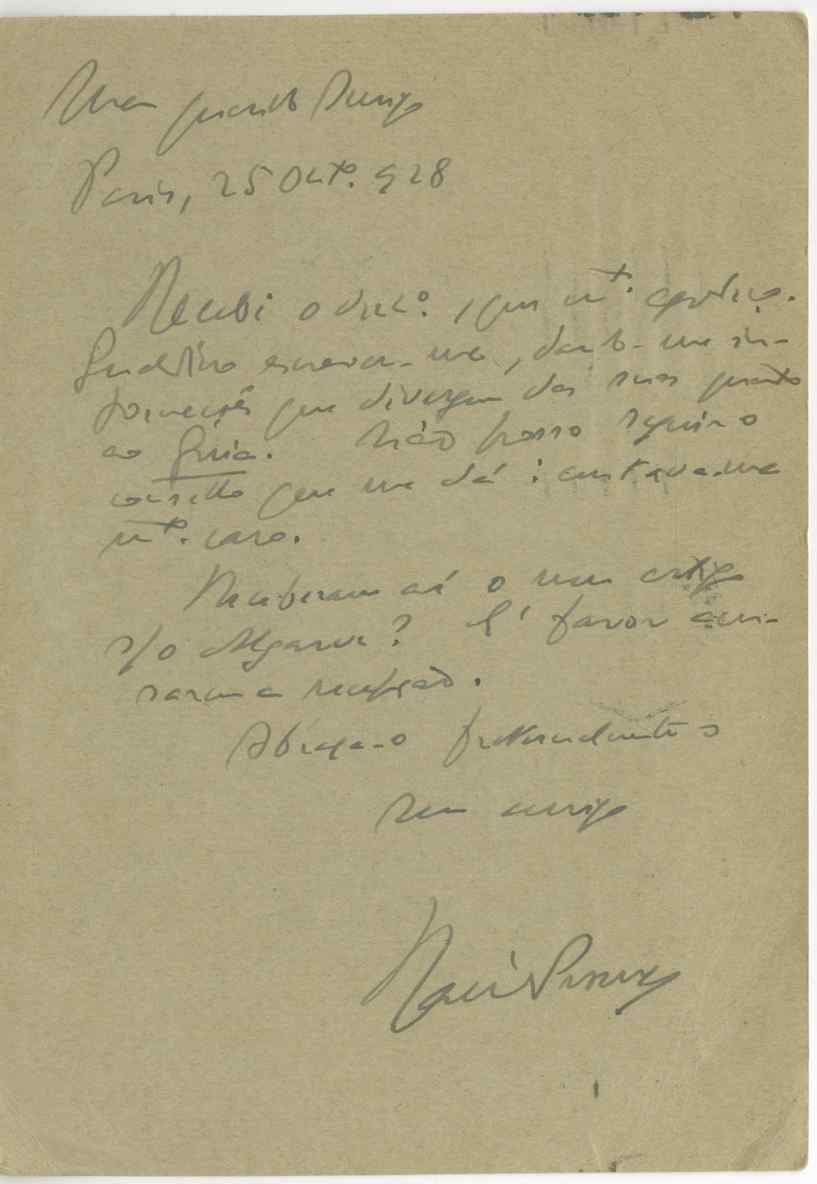 Meu querido Amigo
Paris, 25 Outº. 928
Recebi o , que mtº. agradeço.
escreveu-me, dando-me in-
formações que divergem das suas quanto
ao Guia. Não posso seguir o
conselho que me dá: custava-me
mtº. caro.
Receberam aí o meu artigo
s/o Algarve? É favor acu-
sarem a recepção.
Abraça-o fraternalmente o
seu amigo
Raul Proença